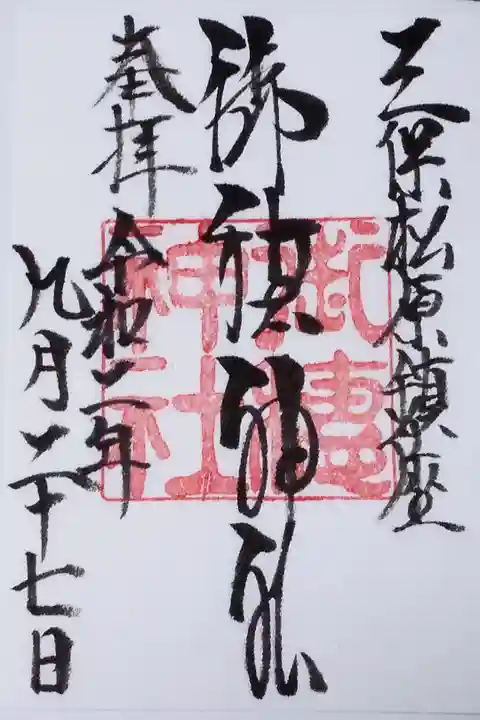 三保松原鎮座
御穂神社
奉拝
令和二年
九月二十七日
御穂
神社